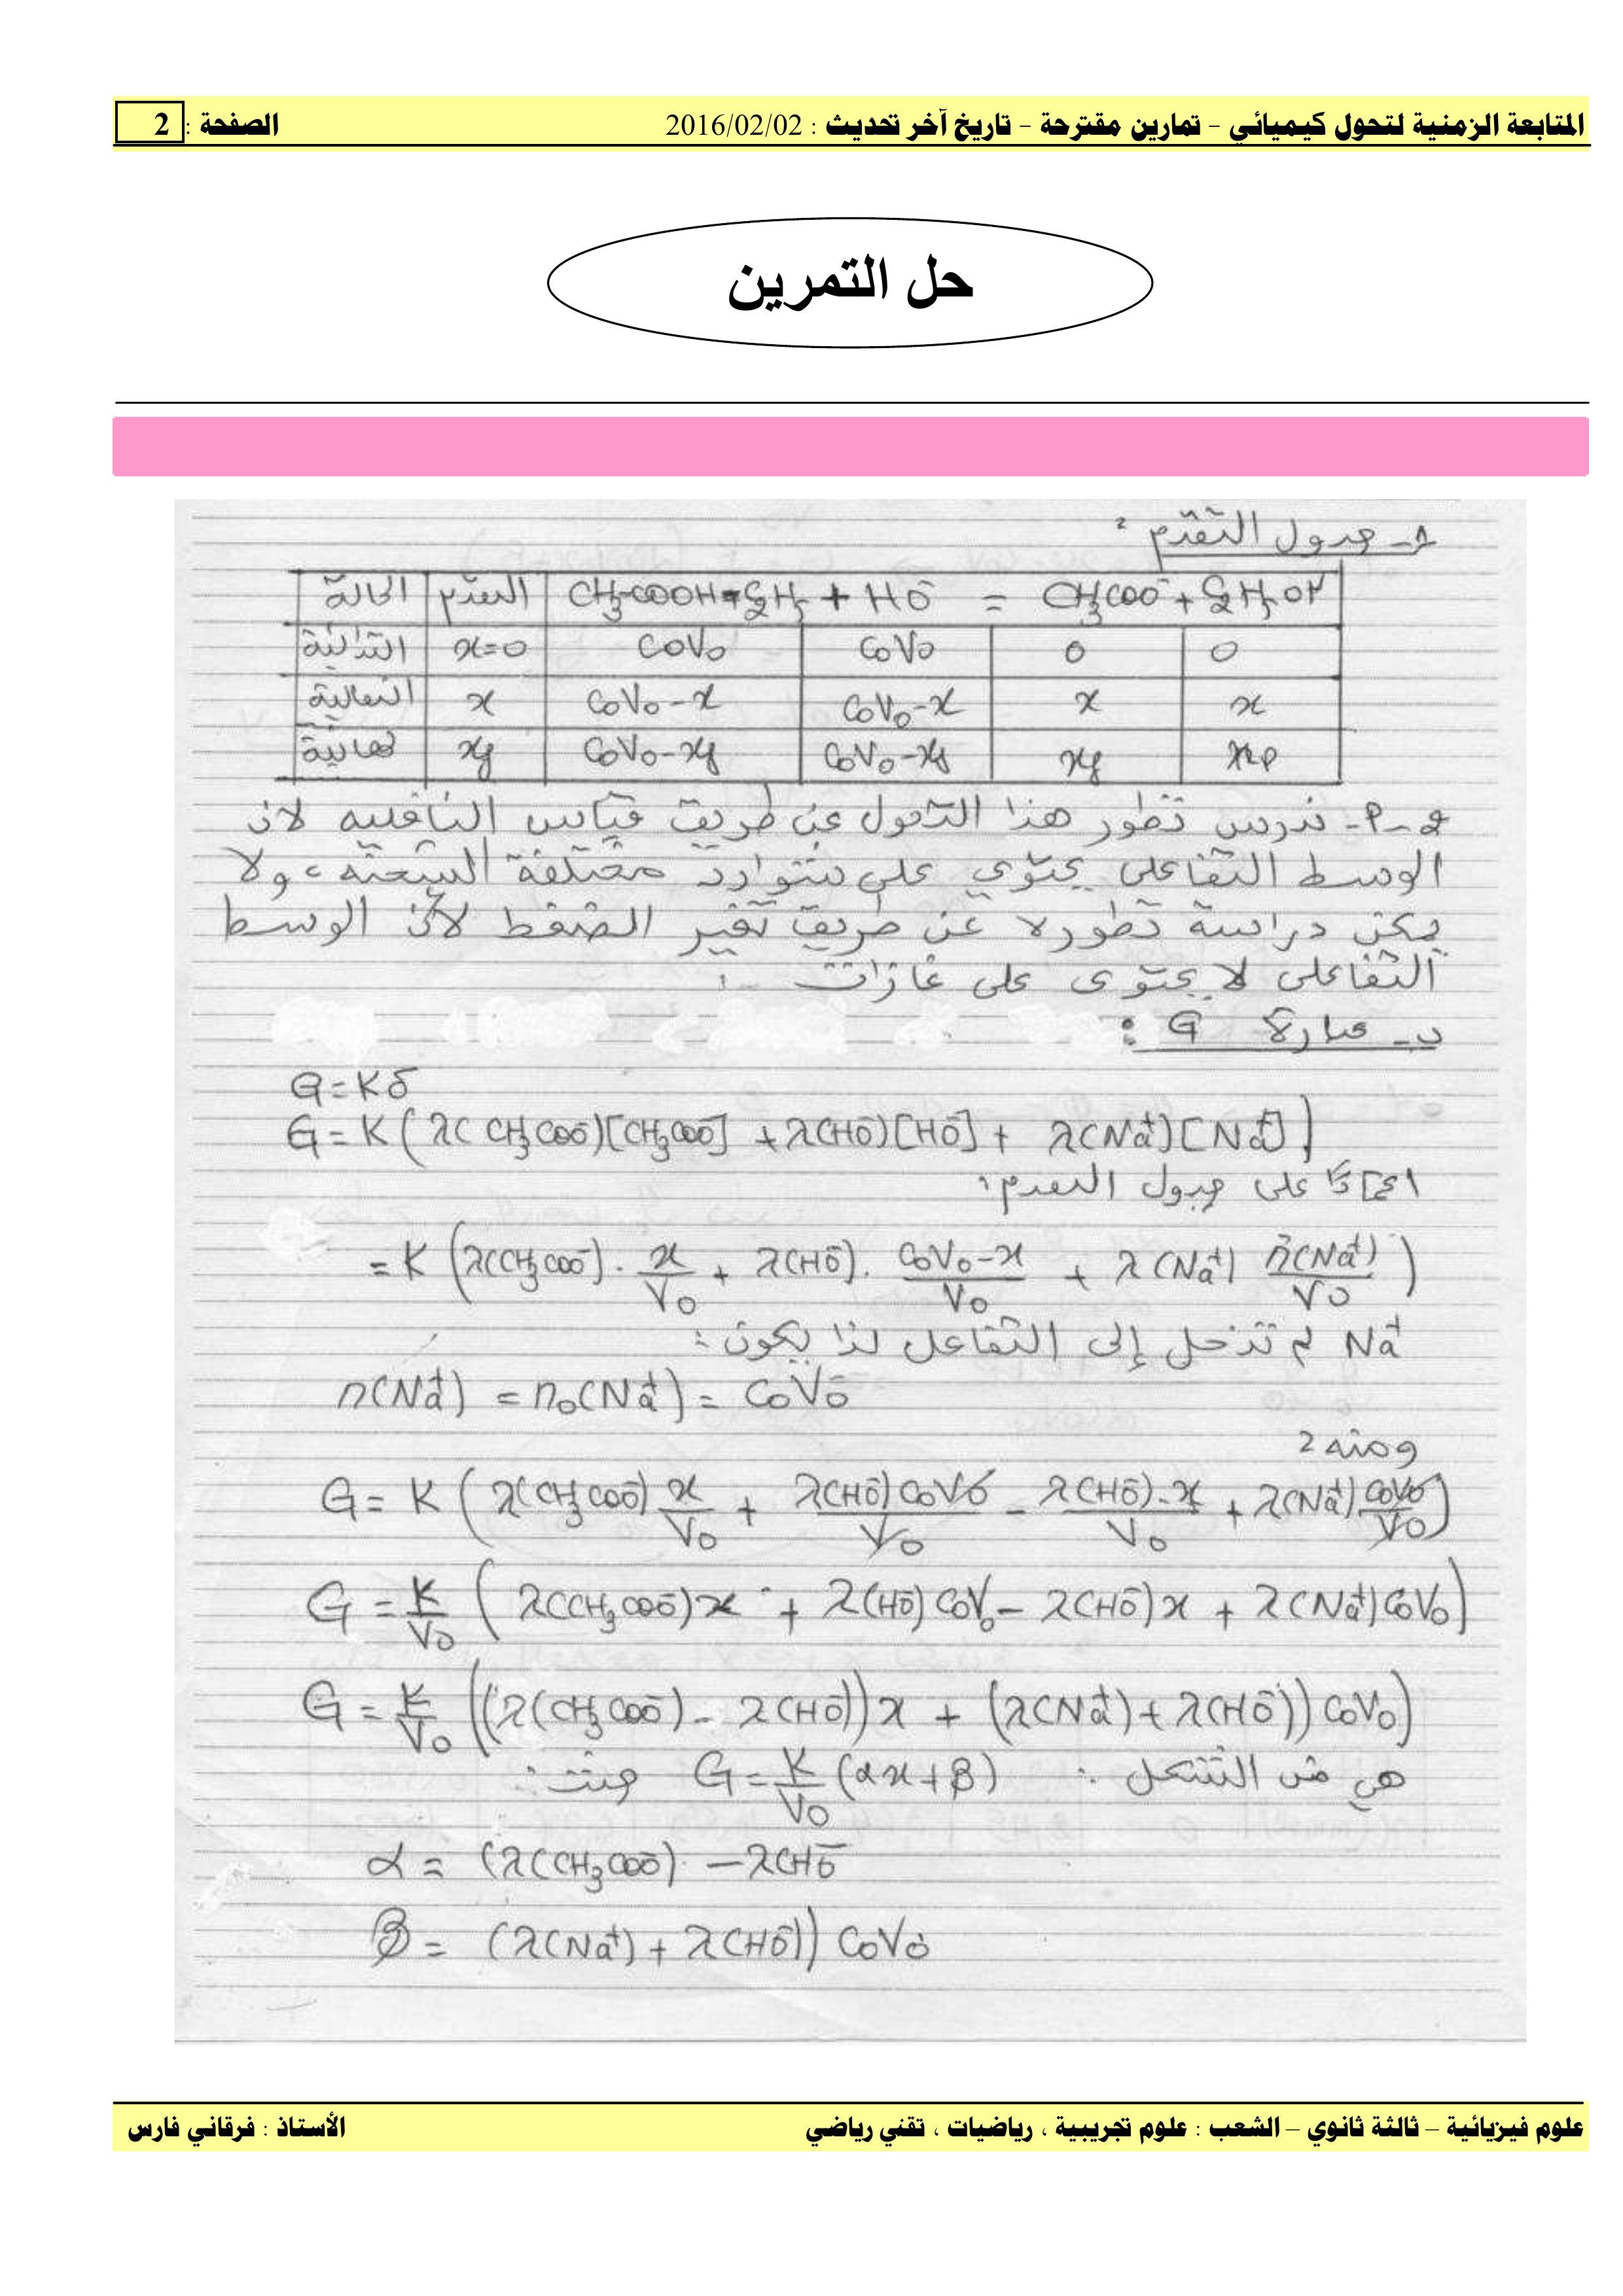 المتابعة الزمنية لتحول كيميائي - تمارين مقترحة - تاريخ آخر تحديث : 2016/02/02 الصفحة : 2
حل التمرين
1- جدول التقدم :
الحالة التقدم CH₃COOC₂H₅ + HO⁻ = CH₃COO⁻ + C₂H₅OH
x=0 C₀V₀ C₀V₀ 0 0
x C₀V₀-x C₀V₀-x x x
نهائية xf C₀V₀-xf C₀V₀-xf xf xf
2-أ- ندرس تطور هذا التحول عن طريق قياس الناقلية لأن
الوسط التفاعلي يحتوي على شوارد مختلفة الشحنة، ولا
يمكن دراسة تطوره عن طريق تغير الضغط لأن الوسط
التفاعلي لا يحتوى على غازات .
ب- عبارة G :
G = Kδ
G = K ( λ(CH₃COO⁻)[CH₃COO⁻] + λ(HO⁻)[HO⁻] + λ(Na⁺)[Na⁺] )
اعتمادا على جدول التقدم :
= K ( λ(CH₃COO⁻) . x/V₀ + λ(HO⁻) . (C₀V₀-x)/V₀ + λ(Na⁺) n(Na⁺)/V₀ )
Na⁺ لم تدخل إلى التفاعل لذا يكون :
n(Na⁺) = n₀(Na⁺) = C₀V₀
ومنه :
G = K ( λ(CH₃COO⁻) x/V₀ + λ(HO⁻) C₀V₀/V₀ - λ(HO⁻).x/V₀ + λ(Na⁺) C₀V₀/V₀ )
G = K/V₀ ( λ(CH₃COO⁻)x + λ(HO⁻) C₀V₀ - λ(HO⁻)x + λ(Na⁺)C₀V₀ )
G = K/V₀ ((λ(CH₃COO⁻) - λ(HO⁻))x + (λ(Na⁺) + λ(HO⁻)) C₀V₀)
هي من الشكل : G = K/V₀ (αx+β) حيث :
α = (λ(CH₃COO⁻) - λ(HO⁻
β = (λ(Na⁺) + λ(HO⁻)) C₀V₀
علوم فيزيائية – ثالثة ثانوي – الشعب : علوم تجريبية ، رياضيات ، تقني رياضي الأستاذ : فرقاني فارس